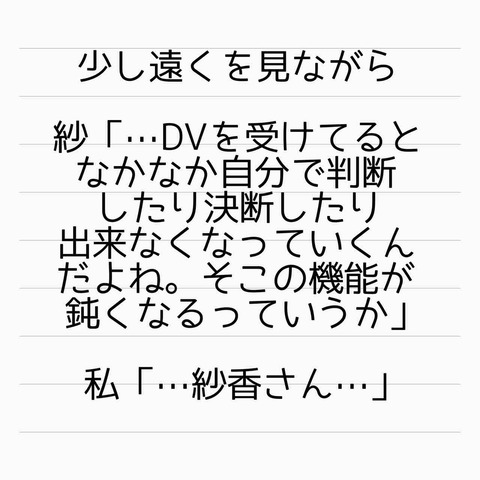 少し遠くを見ながら
紗「…DVを受けてると
なかなか自分で判断
したり決断したり
出来なくなっていくん
だよね。そこの機能が
鈍くなるっていうか」
私「…紗香さん…」